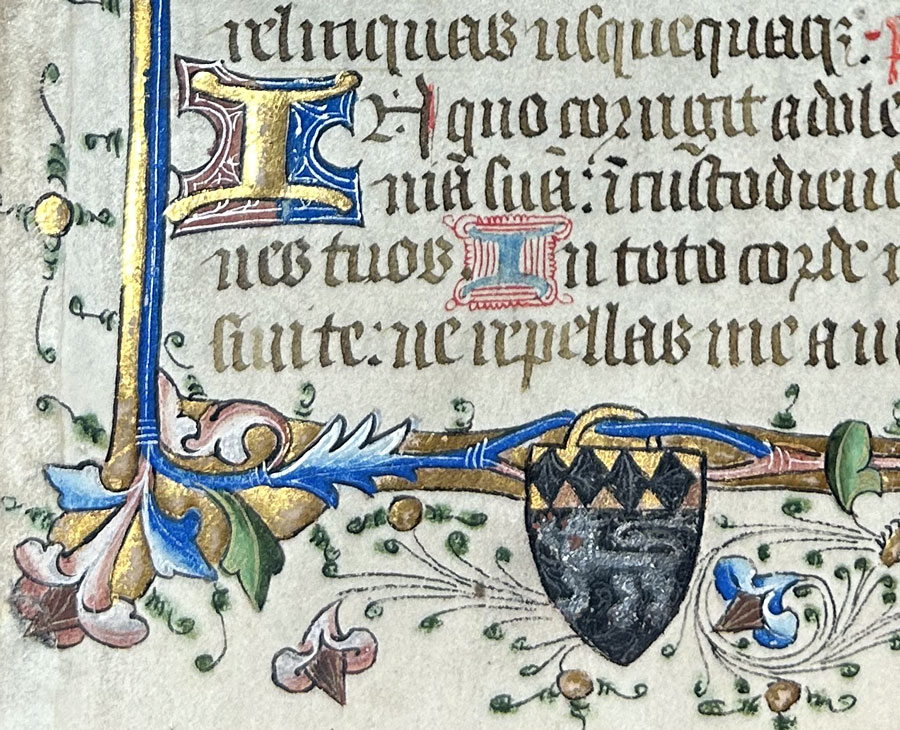 relinquas usquequaqꝫ
IN quo corrigit adole
uiā suā: ī custodiend
nes tuos. In toto corde
siui te: ne repellas me a